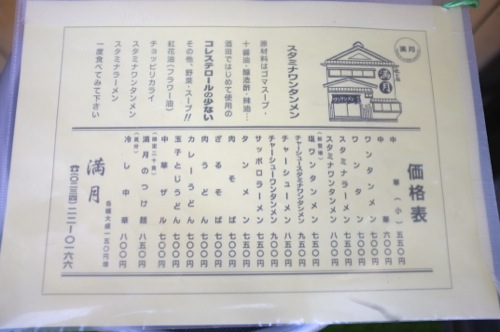 満月
価格表
中華（小）　五五〇円
中華　六〇〇円
ワンタンメン　七〇〇円
ワンタン　七〇〇円
スタミナラーメン　七五〇円
スタミナワンタンメン　八〇〇円
塩ワンタンメン　七五〇円
チャーシュースタミナワンタンメン　九五〇円
チャーシューメン　八五〇円
チャーシューワンタンメン　九〇〇円
サッポロラーメン　七五〇円
タンメン　七五〇円
肉そば　七〇〇円
ざるそば　七五〇円
肉うどん　七〇〇円
カレーうどん　七五〇円
玉子とじうどん　七〇〇円
中華ザル　七五〇円
満月のつけ麺　八五〇円
冷し中華　八〇〇円
各種大盛一五〇円増
満月
☎〇二三四―二二―〇一六六
スタミナワンタンメン
原材料はゴマスープ・
十醤油・醸造酢・辣油…
酒田ではじめて使用の
コレステロールの少ない
紅花油（フラワー油）
その他、野菜・スープ!!
チョッピリカライ
スタミナワンタンメン
スタミナラーメン
一度食べてみて下さい